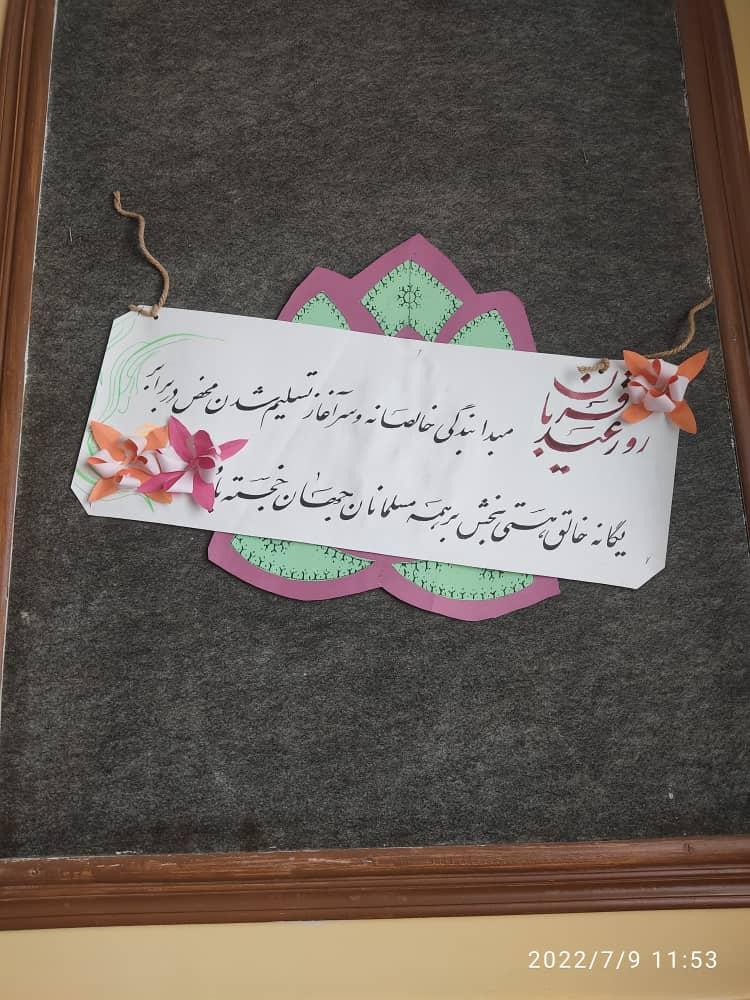 روز عید قربان
مبدا بندگی خالصانه و سرآغاز تسلیم شدن محض در برابر
یگانه خالق هستی بخش بر همه مسلمانان جهان خجسته
2022/7/9 11:53